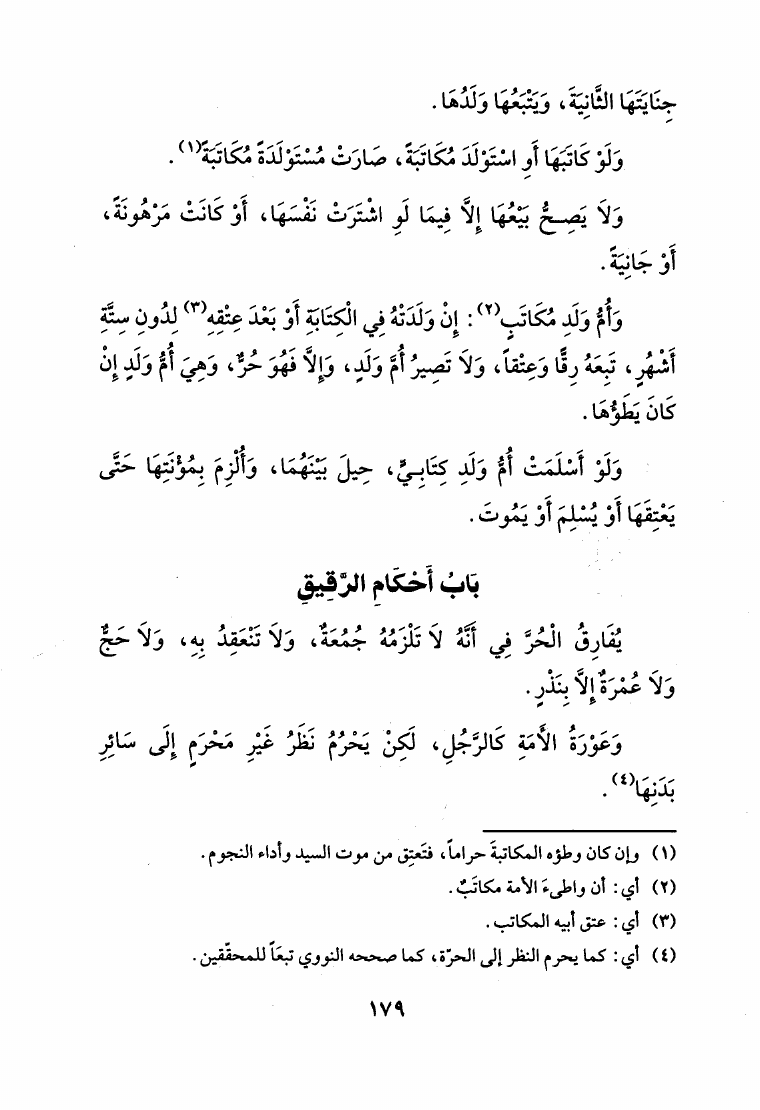 جِنَايَتَهَا الثَّانِيَةَ، وَيَتْبَعُهَا وَلَدُهَا.
وَلَوْ كَاتَبَهَا أَوِ اسْتَوْلَدَ مُكَاتَبَةً، صَارَتْ مُسْتَوْلَدَةً مُكَاتَبَةً(١).
وَلاَ يَصِحُّ بَيْعُهَا إِلاَّ فِيمَا لَوِ اشْتَرَتْ نَفْسَهَا، أَوْ كَانَتْ مَرْهُونَةً،
أَوْ جَانِيَةً.
وَأُمُّ وَلَدِ مُكَاتَبٍ(٢): إِنْ وَلَدَتْهُ فِي الْكِتَابَةِ أَوْ بَعْدَ عِتْقِهِ(٣) لِدُونِ سِتَّةِ
أَشْهُرٍ، تَبِعَهُ رِقًّا وَعِتْقاً، وَلاَ تَصِيرُ أُمَّ وَلَدٍ، وَإِلاَّ فَهُوَ حُرٌّ، وَهِيَ أُمُّ وَلَدٍ إِنْ
كَانَ يَطَؤُهَا.
وَلَوْ أَسْلَمَتْ أُمُّ وَلَدِ كِتَابِيٍّ، حِيلَ بَيْنَهُمَا، وَأُلْزِمَ بِمُؤْنَتِهَا حَتَّى
يَعْتِقَهَا أَوْ يُسْلِمَ أَوْ يَمُوتَ.
بَابُ أَحْكَامِ الرَّقِيقِ
يُفَارِقُ الْحُرَّ فِي أَنَّهُ لاَ تَلْزَمُهُ جُمُعَةٌ، وَلاَ تَنْعَقِدُ بِهِ، وَلاَ حَجٌّ
وَلاَ عُمْرَةٌ إِلاَّ بِنَذْرٍ.
وَعَوْرَةُ الأَمَةِ كَالرَّجُلِ، لَكِنْ يَحْرُمُ نَظَرُ غَيْرِ مَحْرَمٍ إِلَى سَائِرِ
بَدَنِهَا(٤).
(١) وإن كان وطؤه المكاتبةَ حراماً، فتَعتِق من موت السيد وأداء النجوم.
(٢) أي: أن واطىءَ الأمة مكاتَبٌ.
(٣) أي: عتق أبيه المكاتب.
(٤) أي: كما يحرم النظر إلى الحرّة، كما صححه النووي تبعَاً للمحقّقين.
١٧٩